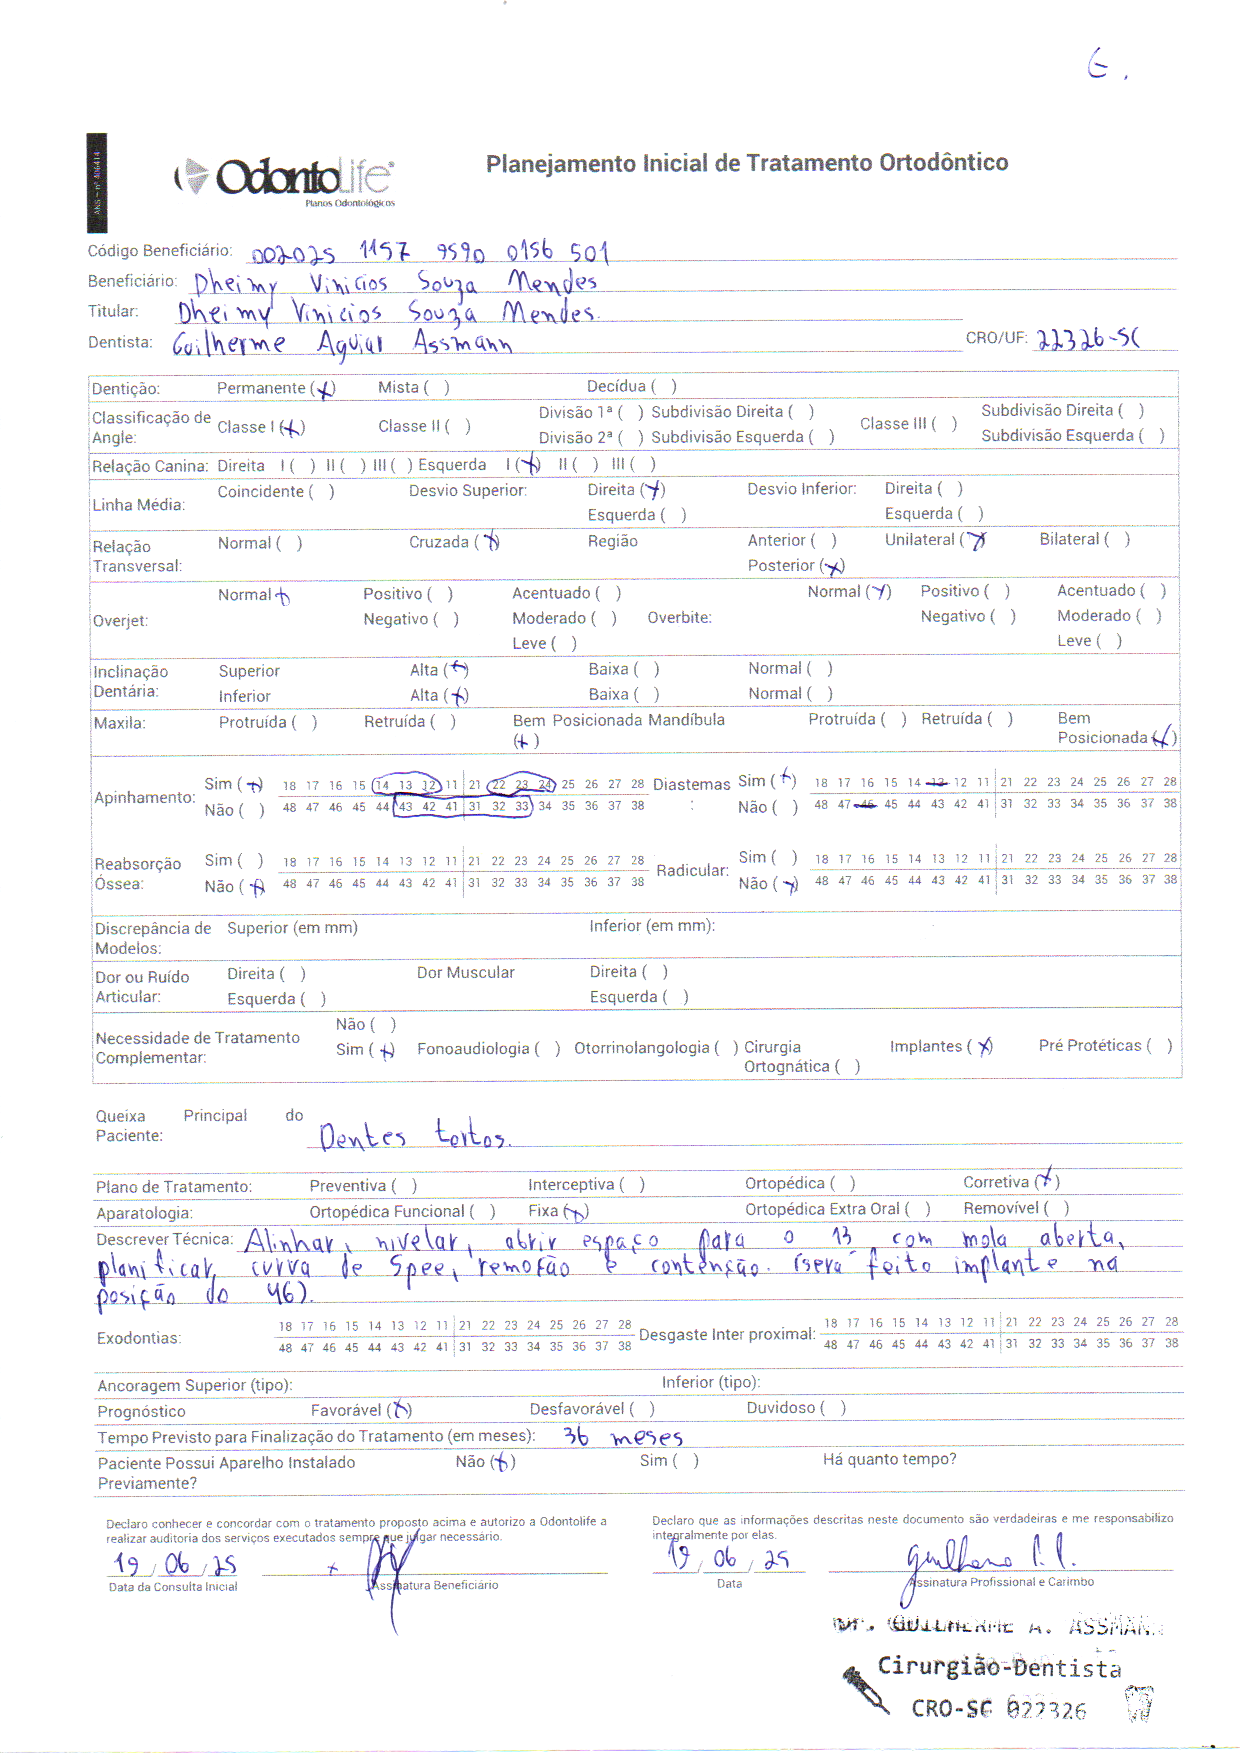 G.
ANS - nº 406414
OdontoLife®
Planos Odontológicos
Planejamento Inicial de Tratamento Ortodôntico
Código Beneficiário: 002025 1157 9590 0156 501
Beneficiário: Dheimy Vinicios Souza Mendes
Titular: Dheimy Vinicios Souza Mendes.
Dentista: Guilherme Aguiar Assmann CRO/UF: 22326-SC
Dentição: Permanente (x) Mista ( ) Decídua ( )
Classificação de Angle: Classe I (x) Classe II ( ) Divisão 1ª ( ) Subdivisão Direita ( ) Classe III ( ) Subdivisão Direita ( )
Divisão 2ª ( ) Subdivisão Esquerda ( ) Subdivisão Esquerda ( )
Relação Canina: Direita I ( ) II ( ) III ( ) Esquerda I (x) II ( ) III ( )
Linha Média: Coincidente ( ) Desvio Superior: Direita (x) Desvio Inferior: Direita ( )
Esquerda ( ) Esquerda ( )
Relação Transversal: Normal ( ) Cruzada (x) Região Anterior ( ) Unilateral (x) Bilateral ( )
Posterior (x)
Normal x Positivo ( ) Acentuado ( ) Normal (x) Positivo ( ) Acentuado ( )
Overjet: Negativo ( ) Moderado ( ) Overbite: Negativo ( ) Moderado ( )
Leve ( ) Leve ( )
Inclinação Dentária: Superior Alta (x) Baixa ( ) Normal ( )
Inferior Alta (x) Baixa ( ) Normal ( )
Maxila: Protruída ( ) Retruída ( ) Bem Posicionada (x) Mandíbula Protruída ( ) Retruída ( ) Bem Posicionada (x)
Apinhamento: Sim (x) 18 17 16 15 14 13 12 11 21 22 23 24 25 26 27 28 Diastemas: Sim (x) 18 17 16 15 14 13 12 11 21 22 23 24 25 26 27 28
Não ( ) 48 47 46 45 44 43 42 41 31 32 33 34 35 36 37 38 Não ( ) 48 47 46 45 44 43 42 41 31 32 33 34 35 36 37 38
Reabsorção Óssea: Sim ( ) 18 17 16 15 14 13 12 11 21 22 23 24 25 26 27 28 Radicular: Sim ( ) 18 17 16 15 14 13 12 11 21 22 23 24 25 26 27 28
Não (x) 48 47 46 45 44 43 42 41 31 32 33 34 35 36 37 38 Não (x) 48 47 46 45 44 43 42 41 31 32 33 34 35 36 37 38
Discrepância de Modelos: Superior (em mm) Inferior (em mm):
Dor ou Ruído Articular: Direita ( ) Dor Muscular Direita ( )
Esquerda ( ) Esquerda ( )
Necessidade de Tratamento Complementar: Não ( )
Sim (x) Fonoaudiologia ( ) Otorrinolangologia ( ) Cirurgia Ortognática ( ) Implantes (x) Pré Protéticas ( )
Queixa Principal do Paciente: Dentes tortos.
Plano de Tratamento: Preventiva ( ) Interceptiva ( ) Ortopédica ( ) Corretiva (x)
Aparatologia: Ortopédica Funcional ( ) Fixa (x) Ortopédica Extra Oral ( ) Removível ( )
Descrever Técnica: Alinhar, nivelar, abrir espaço para o 13 com mola aberta,
planificar, curva de Spee, remoção e contenção. (será feito implante na
posição do 46).
Exodontias: 18 17 16 15 14 13 12 11 21 22 23 24 25 26 27 28 Desgaste Inter proximal: 18 17 16 15 14 13 12 11 21 22 23 24 25 26 27 28
48 47 46 45 44 43 42 41 31 32 33 34 35 36 37 38 48 47 46 45 44 43 42 41 31 32 33 34 35 36 37 38
Ancoragem Superior (tipo): Inferior (tipo):
Prognóstico Favorável (x) Desfavorável ( ) Duvidoso ( )
Tempo Previsto para Finalização do Tratamento (em meses): 36 meses
Paciente Possui Aparelho Instalado Previamente? Não (x) Sim ( ) Há quanto tempo?
Declaro conhecer e concordar com o tratamento proposto acima e autorizo a Odontolife a
realizar auditoria dos serviços executados sempre que julgar necessário.
Declaro que as informações descritas neste documento são verdadeiras e me responsabilizo
integralmente por elas.
19/06/25 x 19/06/25
Data da Consulta Inicial Assinatura Beneficiário Data Assinatura Profissional e Carimbo
Dr. GUILHERME A. ASSMAN
Cirurgião-Dentista
CRO-SC 022326